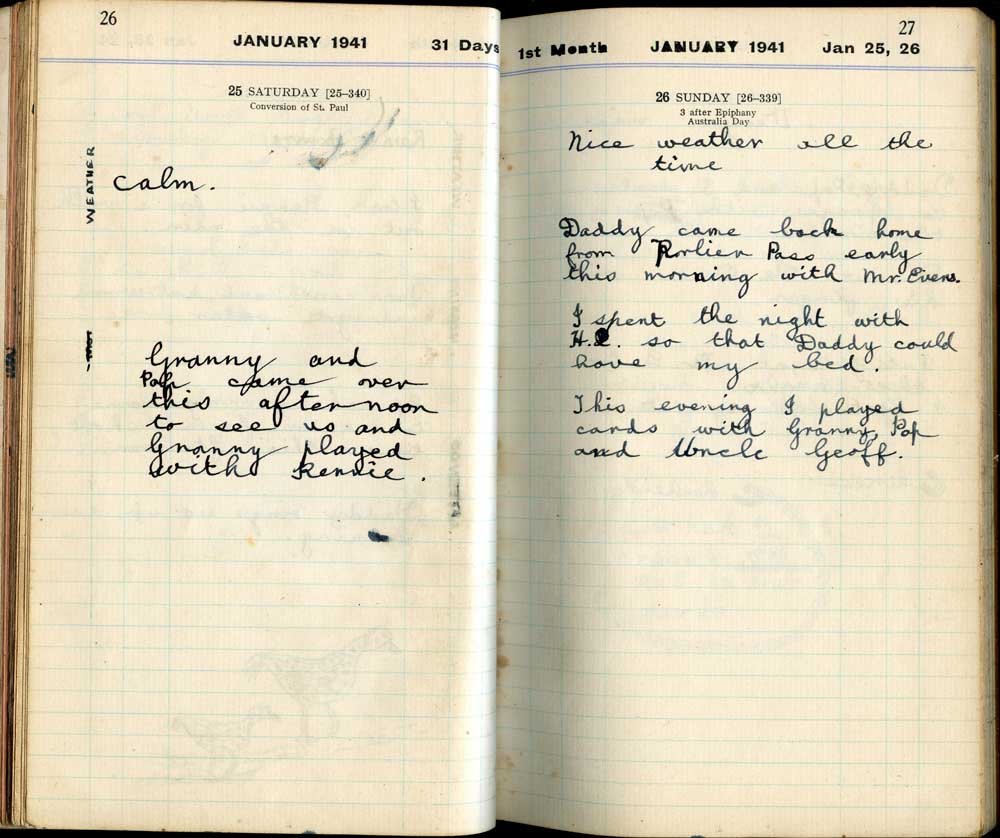 26
JANUARY 1941 31 Days
25 SATURDAY [25–340]
Conversion of St. Paul
WEATHER
calm.
Granny and
Pop came over
this afternoon
to see us and
Granny played
with Kennie.
27
1st Month JANUARY 1941 Jan 25, 26
26 SUNDAY [26–339]
3 after Epiphany
Australia Day
Nice weather all the
time
Daddy came back home
from Porlier Pass early
this morning with Mr. Evens.
I spent the night with
so that Daddy could
have my bed.
This evening I played
cards with Granny, Pop
and Uncle Geoff.